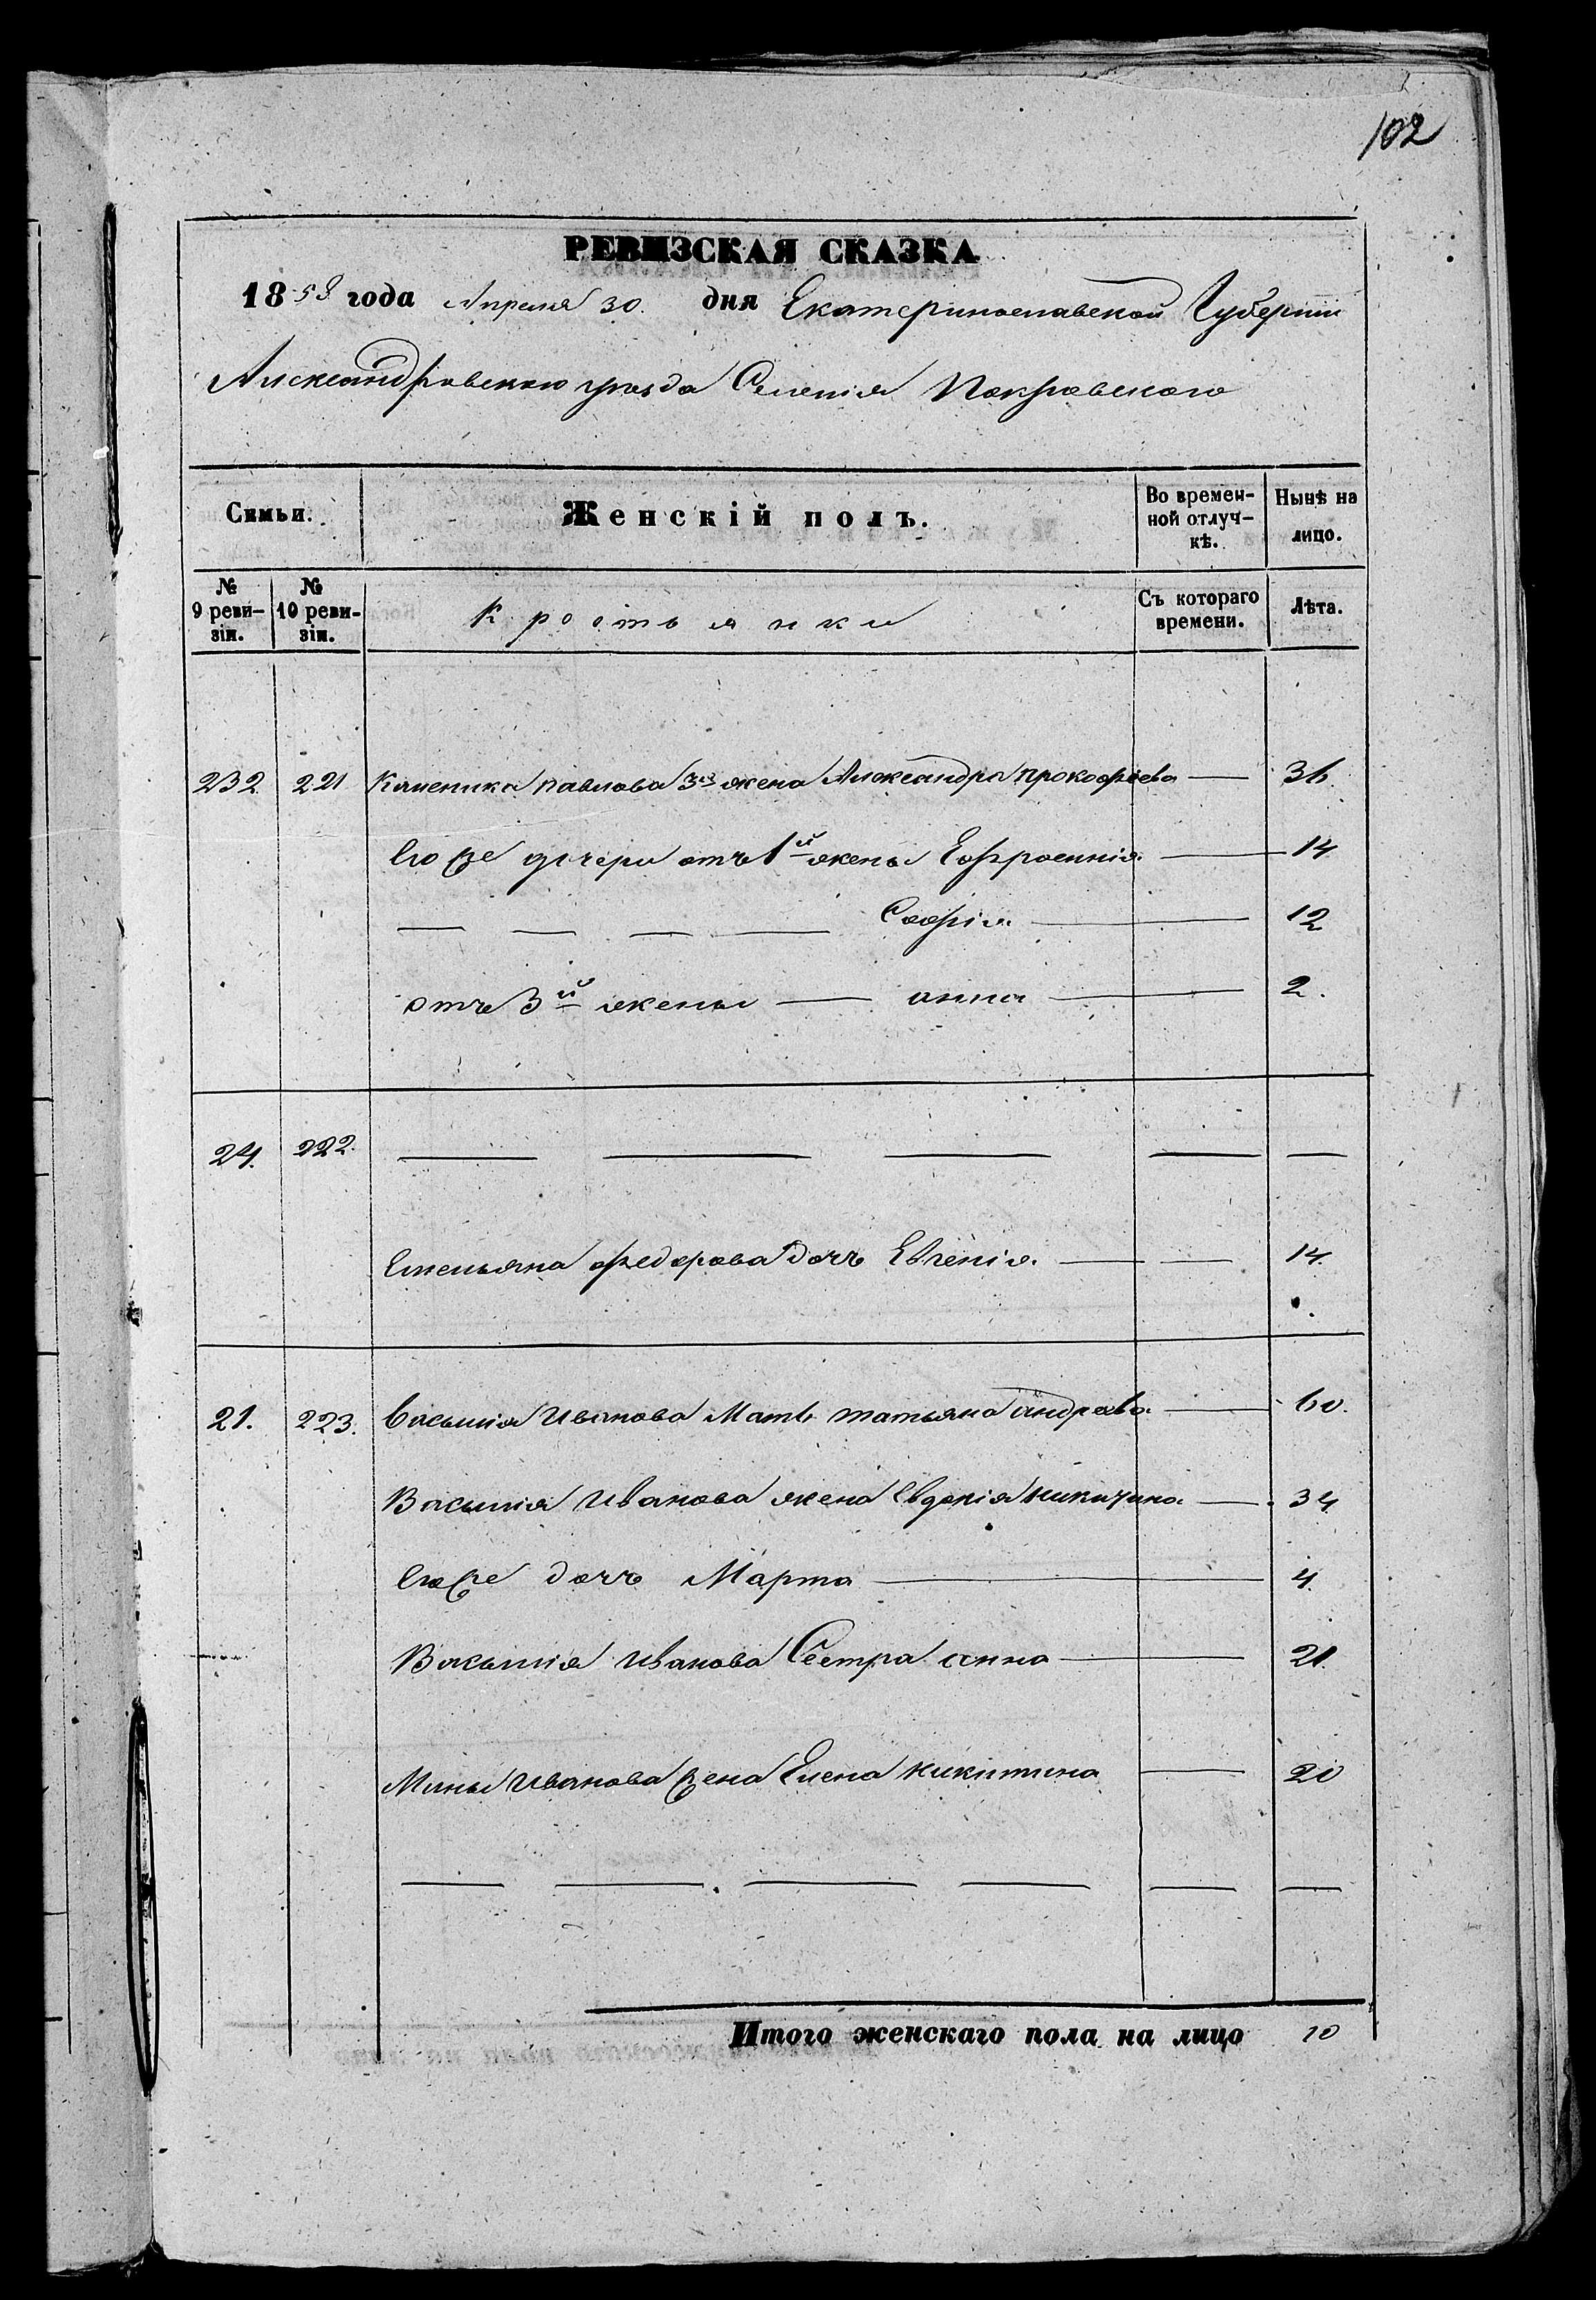 102
РЕВИЗСКАЯ СКАЗКА
1858 года Апреля 30. дня Екатеринославской Губернии
Александровскаго уезда Селенія Покровскаго
Семьи. Женскій полъ. Во времен-ной отлуч-кѣ. Нынѣ на лицо.
№ 9 реви-зіи. № 10 реви-зіи. Крестьянки Съ котораго времени. Лѣта.
232 221 павлова 3я жена Александра прокофьева — 36.
Его же дочери отъ 1й жены Ефросинія — 14
— — — — Софія — 12
отъ 3й жены — анна — 2.
24. 222. — — — — —
Емельяна федорова дочь Евгенія — — 14.
21. 223. Василія Иванова Мать татьяна андреева — 60.
Василія Иванова жена Евдокія никитина — 34
Его же дочь Марта — 4
Василія Иванова Сестра анна — 21.
Мины Иванова жена Елена никитина — 20
— — — — — —
Итого женскаго пола на лицо 10